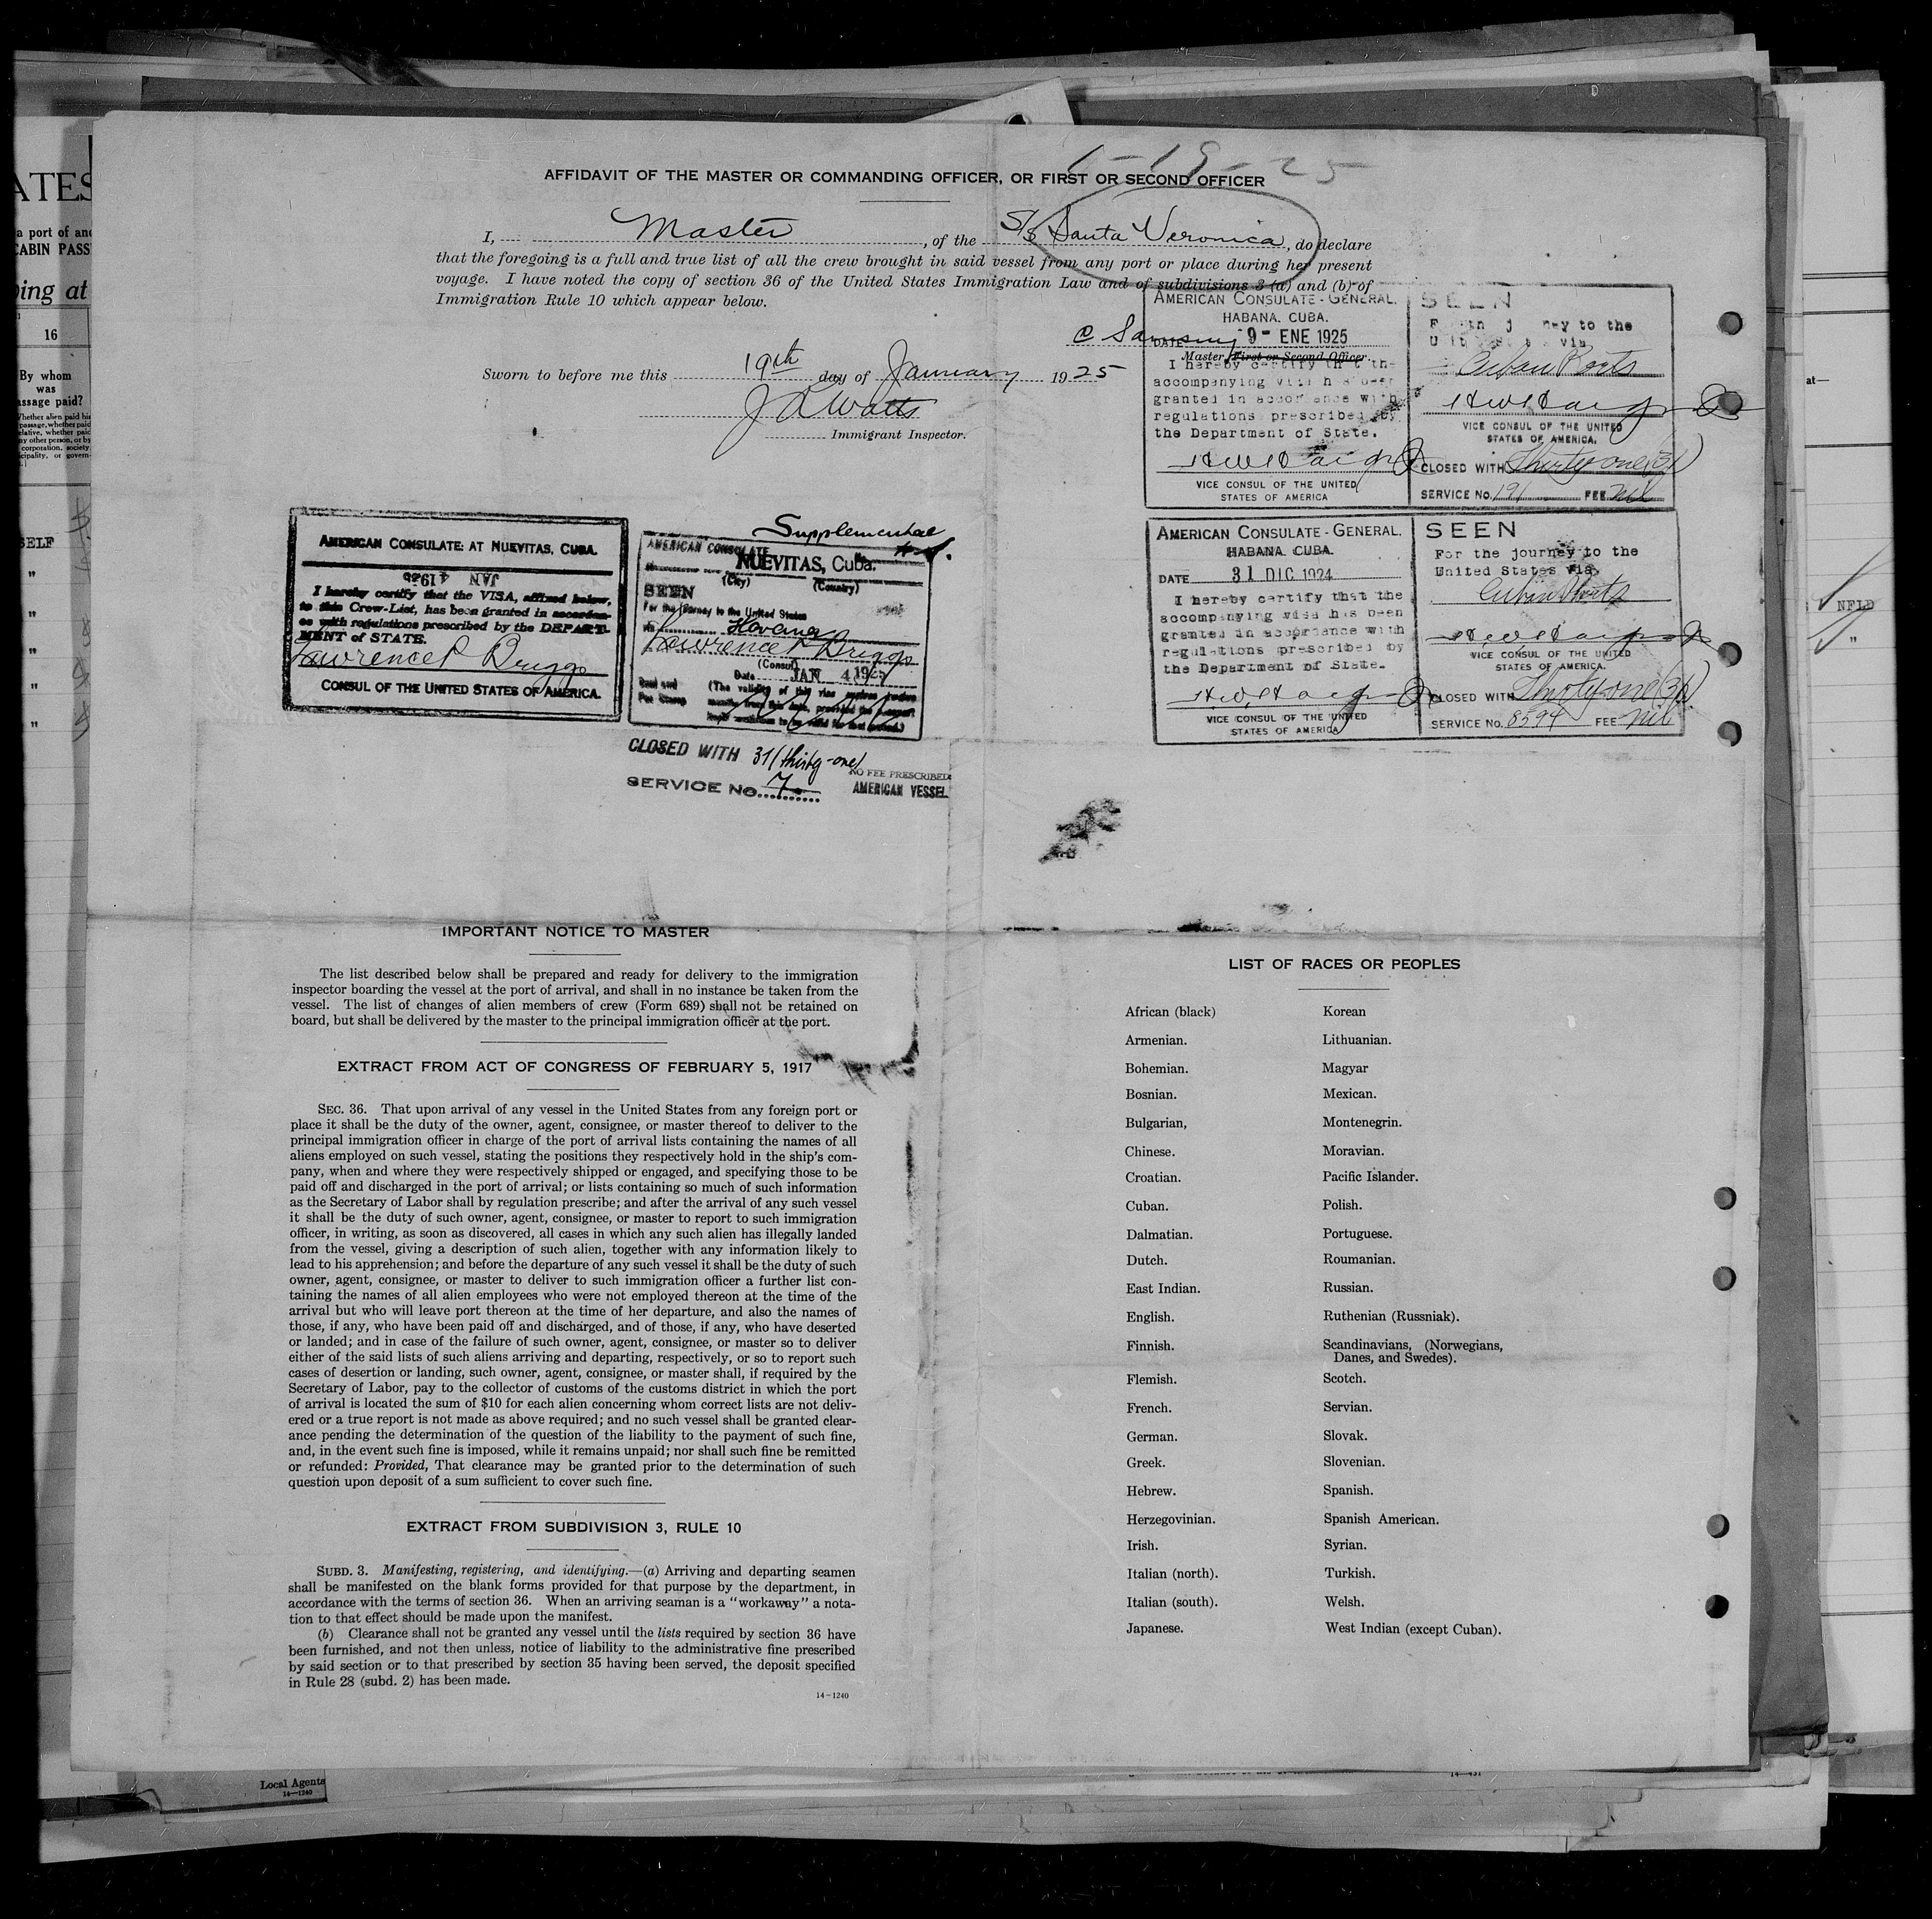 1-19-25
AFFIDAVIT OF THE MASTER OR COMMANDING OFFICER, OR FIRST OR SECOND OFFICER
I, Master, of the S/S Santa Veronica, do declare
that the foregoing is a full and true list of all the crew brought in said vessel from any port or place during her present
voyage. I have noted the copy of section 36 of the United States Immigration Law and of subdivisions 3 (a) and (b) of
Immigration Rule 10 which appear below.
Master First or Second Officer.
Sworn to before me this 19th day of January 1925
Immigrant Inspector.
AMERICAN CONSULATE-GENERAL.
HABANA. CUBA.
DATE 9- ENE 1925
I hereby certify that the
accompanying visa has been
granted in accordance with
regulations prescribed by
the Department of State.
VICE CONSUL OF THE UNITED
STATES OF AMERICA
SEEN
to the
via
Cuban Ports
VICE CONSUL OF THE UNITED
STATES OF AMERICA.
CLOSED WITH Thirty one (31)
SERVICE No. 191 FEE nil
AMERICAN CONSULATE: AT NUEVITAS, CUBA.
JAN 4 1925
I hereby certify that the VISA, affixed below,
to this Crew-List, has been granted in accordan-
ce with regulations prescribed by the DEPART-
MENT of STATE.
Lawrence P Briggs
CONSUL OF THE UNITED STATES OF AMERICA.
Supplemental
AMERICAN CONSULATE
NUEVITAS, Cuba.
(City) (Country)
SEEN
For the journey to the United States
via Havana
Lawrence P Briggs
(Consul)
Date JAN 4 1925
CLOSED WITH 31 (thirty-one)
SERVICE No. 7
NO FEE PRESCRIBED
AMERICAN VESSEL
AMERICAN CONSULATE-GENERAL.
HABANA. CUBA.
DATE 31 DIC 1924
I hereby certify that the
accompanying visa has been
granted in accordance with
regulations prescribed by
the Department of State.
VICE CONSUL OF THE UNITED
STATES OF AMERICA
SEEN
For the journey to the
United States via
Cuban Ports
VICE CONSUL OF THE UNITED
STATES OF AMERICA.
CLOSED WITH Thirty one (31)
SERVICE No. 8594 FEE nil
IMPORTANT NOTICE TO MASTER
The list described below shall be prepared and ready for delivery to the immigration
inspector boarding the vessel at the port of arrival, and shall in no instance be taken from the
vessel. The list of changes of alien members of crew (Form 689) shall not be retained on
board, but shall be delivered by the master to the principal immigration officer at the port.
EXTRACT FROM ACT OF CONGRESS OF FEBRUARY 5, 1917
SEC. 36. That upon arrival of any vessel in the United States from any foreign port or
place it shall be the duty of the owner, agent, consignee, or master thereof to deliver to the
principal immigration officer in charge of the port of arrival lists containing the names of all
aliens employed on such vessel, stating the positions they respectively hold in the ship's com-
pany, when and where they were respectively shipped or engaged, and specifying those to be
paid off and discharged in the port of arrival; or lists containing so much of such information
as the Secretary of Labor shall by regulation prescribe; and after the arrival of any such vessel
it shall be the duty of such owner, agent, consignee, or master to report to such immigration
officer, in writing, as soon as discovered, all cases in which any such alien has illegally landed
from the vessel, giving a description of such alien, together with any information likely to
lead to his apprehension; and before the departure of any such vessel it shall be the duty of such
owner, agent, consignee, or master to deliver to such immigration officer a further list con-
taining the names of all alien employees who were not employed thereon at the time of the
arrival but who will leave port thereon at the time of her departure, and also the names of
those, if any, who have been paid off and discharged, and of those, if any, who have deserted
or landed; and in case of the failure of such owner, agent, consignee, or master so to deliver
either of the said lists of such aliens arriving and departing, respectively, or so to report such
cases of desertion or landing, such owner, agent, consignee, or master shall, if required by the
Secretary of Labor, pay to the collector of customs of the customs district in which the port
of arrival is located the sum of $10 for each alien concerning whom correct lists are not deliv-
ered or a true report is not made as above required; and no such vessel shall be granted clear-
ance pending the determination of the question of the liability to the payment of such fine,
and, in the event such fine is imposed, while it remains unpaid; nor shall such fine be remitted
or refunded: Provided, That clearance may be granted prior to the determination of such
question upon deposit of a sum sufficient to cover such fine.
EXTRACT FROM SUBDIVISION 3, RULE 10
SUBD. 3. Manifesting, registering, and identifying.—(a) Arriving and departing seamen
shall be manifested on the blank forms provided for that purpose by the department, in
accordance with the terms of section 36. When an arriving seaman is a "workaway" a nota-
tion to that effect should be made upon the manifest.
(b) Clearance shall not be granted any vessel until the lists required by section 36 have
been furnished, and not then unless, notice of liability to the administrative fine prescribed
by said section or to that prescribed by section 35 having been served, the deposit specified
in Rule 28 (subd. 2) has been made.
14-1240
LIST OF RACES OR PEOPLES
African (black) Korean
Armenian. Lithuanian.
Bohemian. Magyar
Bosnian. Mexican.
Bulgarian, Montenegrin.
Chinese. Moravian.
Croatian. Pacific Islander.
Cuban. Polish.
Dalmatian. Portuguese.
Dutch. Roumanian.
East Indian. Russian.
English. Ruthenian (Russniak).
Finnish. Scandinavians, (Norwegians,
Danes, and Swedes).
Flemish. Scotch.
French. Servian.
German. Slovak.
Greek. Slovenian.
Hebrew. Spanish.
Herzegovinian. Spanish American.
Irish. Syrian.
Italian (north). Turkish.
Italian (south). Welsh.
Japanese. West Indian (except Cuban).
ATES
a port of an
CABIN PASS
ing at
16
By whom
was
passage paid?
SELF
at—
NFLD
Local Agents
14—1240